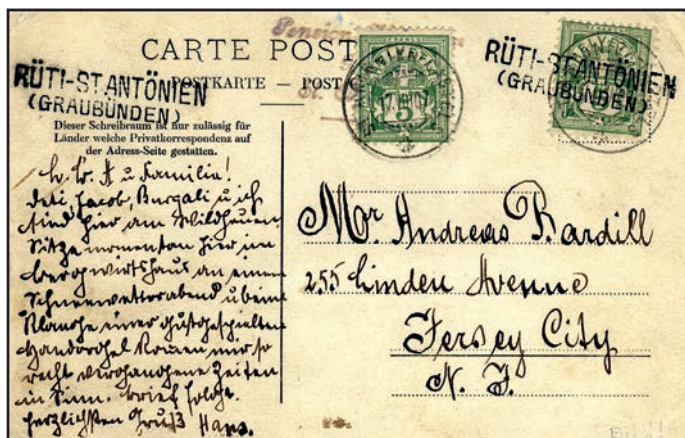 Pension
CARTE POST
RÜTI-ST.ANTÖNIEN
(GRAUBÜNDEN)
RÜTI-ST.ANTÖNIEN
(GRAUBÜNDEN)
POSTKARTE — POST
FRANCO
5
Dieser Schreibraum ist nur zulässig für
Länder welche Privatkorrespondenz auf
der Adress-Seite gestatten.
u Familie!
Deti, Jacob, Burgali u ich
sind hier am Wildheuen
Sitze momentan hier im
Bergwirtshaus an einem
Schneewetterabend u beim
Klange einer gutgespielten
Handorgel kommen mir so
recht vergangene Zeiten
in Sinn. Brief folgt.
Herzlichsten Gruß Hans.
Mr Andreas Bardill
255 Linden Avenue
Jersey City
N. J.